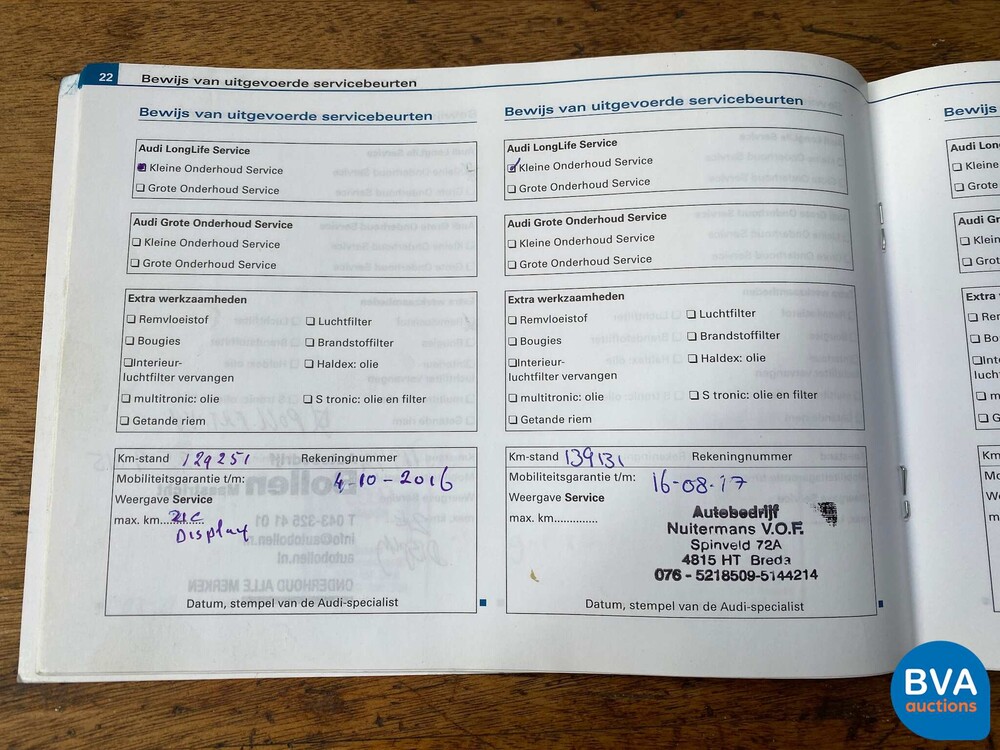 22 Bewijs van uitgevoerde servicebeurten
Bewijs van uitgevoerde servicebeurten
Audi LongLife Service
Kleine Onderhoud Service
Grote Onderhoud Service
Audi Grote Onderhoud Service
Kleine Onderhoud Service
Grote Onderhoud Service
Extra werkzaamheden
Remvloeistof
Luchtfilter
Bougies
Brandstoffilter
Interieur-
luchtfilter vervangen
Haldex: olie
multitronic: olie
S tronic: olie en filter
Getande riem
Km-stand 129251 Rekeningnummer
Mobiliteitsgarantie t/m: 4-10-2016
Weergave Service
max. km.......... zie
Display
Datum, stempel van de Audi-specialist
Bewijs van uitgevoerde servicebeurten
Audi LongLife Service
Kleine Onderhoud Service
Grote Onderhoud Service
Audi Grote Onderhoud Service
Kleine Onderhoud Service
Grote Onderhoud Service
Extra werkzaamheden
Remvloeistof
Luchtfilter
Bougies
Brandstoffilter
Interieur-
luchtfilter vervangen
Haldex: olie
multitronic: olie
S tronic: olie en filter
Getande riem
Km-stand 139131 Rekeningnummer
Mobiliteitsgarantie t/m: 16-08-17
Weergave Service
max. km..............
Autobedrijf
Nuitermans V.O.F.
Spinveld 72A
4815 HT Breda
076 - 5218509-5144214
Datum, stempel van de Audi-specialist
Bewijs
Audi Lon
Klein
Grote
Audi Gr
Klein
Grote
Extra
BVA
auctions